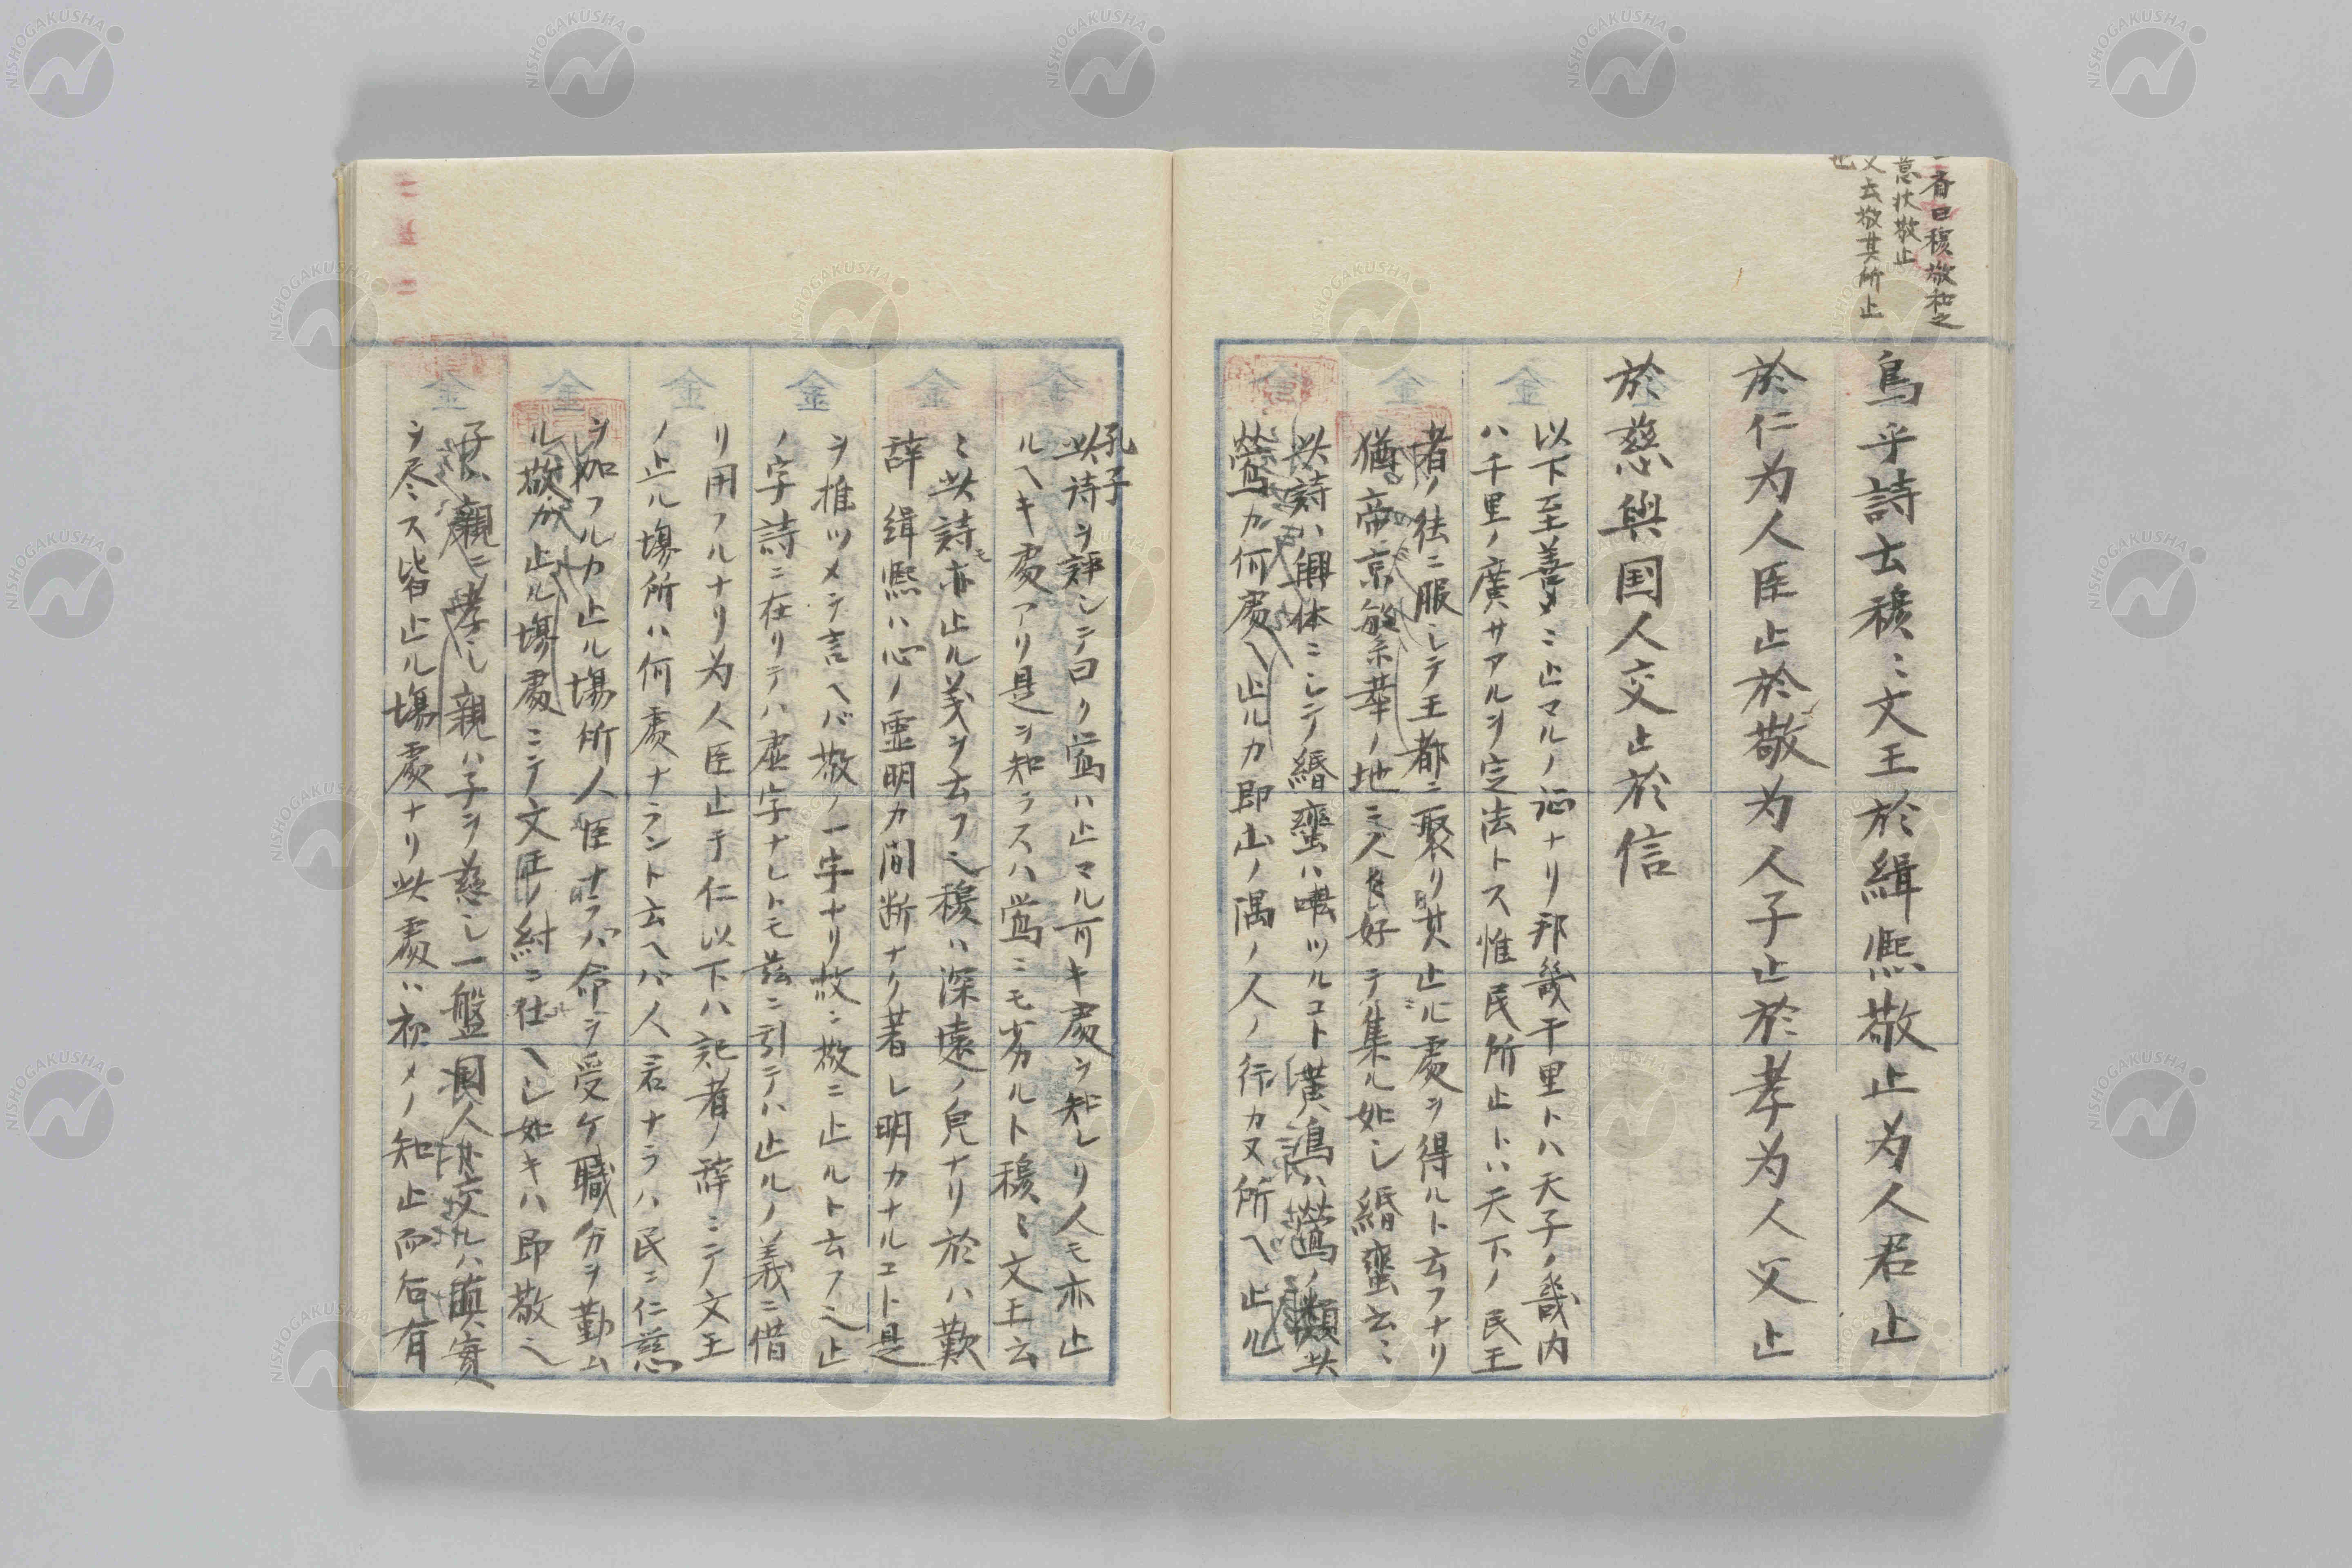 一斉曰穆敬和之
意状敬止
又云敬其所止
也
鳥乎詩云穆〻文王於緝熙敬止為人君止
於仁為人臣止於敬為人子止於孝為人父止
於慈與国人交止於信
以下至善ニ止マルノ証ナリ邦畿千里トハ天子ノ畿内
ハ千里ノ廣サアルヲ定法トス惟民所止トハ天下ノ民王
者ノ徃ニ服シテ王都ニ聚リ其止ル處ヲ得ルト云フナリ
猶帝京繁華ノ地ニ人民好テ集ル如シ緡蠻云〻
此詩ハ興体ニシテ緡蠻ハ囀ツルコト黄鳥ハ鶯ノ類此
鶯カ何處ヘ止ルカ即山ノ隅ノ人ノ行カヌ所ヘ止ル
孔子
此詩ヲ評シテ曰ク鶯ハ止マル可キ處ヲ知レリ人モ亦止
ルヘキ處アリ是ヲ知ラスハ鶯ニモ劣ルト穆〻文王云
〻此詩モ亦止ル義ヲ云フ也穆ハ深遠ノ皃ナリ於ハ歎
辞緝熙ハ心ノ霊明カ間断ナク著レ明カナルコト是
ヲ推ツメテ言ヘバ敬ノ一字ナリ故ニ敬ニ止ルト云フ也止
ノ字詩ニ在リテハ虚字ナレトモ茲ニ引テハ止ルノ義ニ借
リ用フルナリ為人臣止于仁以下ハ記者ノ辞ニテ文王
ノ止ル塲所ハ何處ナラント云ヘバ人君ナラハ民ニ仁慈
ヲ加フルカ止ル塲所人臣ナラバ命ヲ受ケ職分ヲ勤ム
ル敬カ止ル塲處ニテ文王ノ紂ニ仕ヘシ如キハ即敬也
子ハ親ニ孝シ親ハ子ヲ慈シ一盤国人交ルハ真実
ヲ尽ス皆止ル塲處ナリ此處ハ初メノ知止而后有
NISHOGAKUSHA